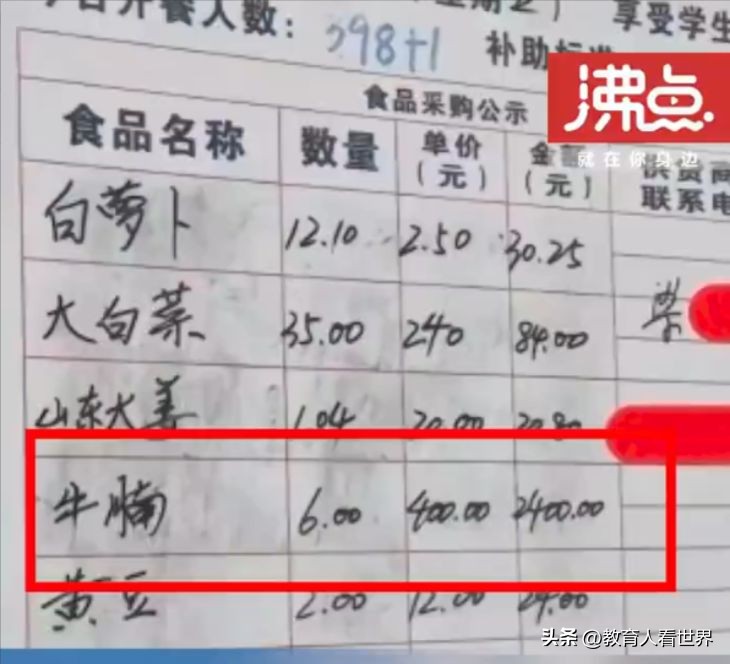 今日开餐人数: 398+1
享受学生
补助标准
食品采购公示
沸点
就在你身边
食品名称 数量 单价(元) 金额(元) 供货商联系电
白萝卜 12.10 2.50 30.25
大白菜 35.00 2.40 84.00
山东大姜 1.04 20.00 20.80
牛腩 6.00 400.00 2400.00
黄豆 2.00 12.00 24.00
头条 @教育人看世界